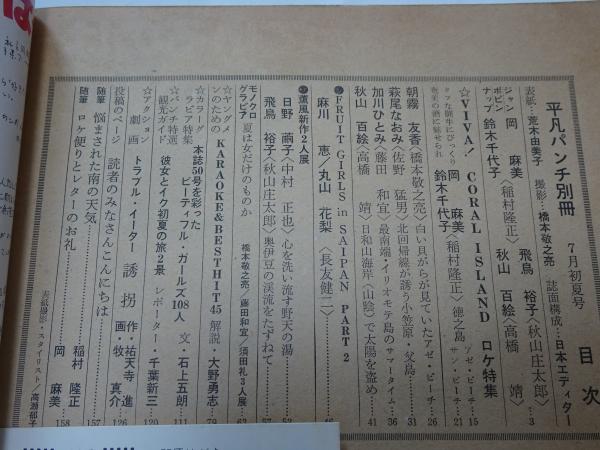 平凡パンチ別冊 7月初夏号 目次
表紙・荒木由美子 撮影・橋本敬之亮 誌面構成・日本エディター
ジャンボピンナップ
岡 麻美〈稲村隆正〉 飛鳥 裕子〈秋山庄太郎〉
鈴木千代子 秋山 百絵〈高橋 靖〉 3
☆VIVA! CORAL ISLAND ロケ特集
岡 麻美〈稲村隆正〉徳之島 アゼ・ビーチ 15
鈴木千代子 サン・ビーチ 21
朝霧 友香〈橋本敬之亮〉白い貝がらが見ていたアゼ・ビーチ 26
萩尾なおみ〈佐野 猛男〉北回帰線が誘う小笠原・父島 31
加川ひとみ〈藤田 和宜〉最南端・イリオモテ島のサマータイム 36
秋山 百絵〈高橋 靖〉日和山海岸〈山陰〉で太陽を盗め 41
FRUIT GIRLS in SAIPAN PART 2
麻川 恵/丸山 花梨〈長友健二〉 46
薫風新作2人展
日野 繭子〈中村 正也〉心を洗い流す野天の湯 52
飛鳥 裕子〈秋山庄太郎〉奥伊豆の渓流をたずねて 57
モノクログラビア 夏は女だけのものか 橋本敬之亮/藤田和宜/須田礼3人展 63
☆ヤングメンのための KARAOKE&BESTHIT45 解説・大野勇志 79
☆カラーグラビア特集 本誌50号を彩ったビーティフル・ガールズ108人 文・石上五朗 111
☆パンチ特選観光ガイド 彼女とイク初夏の旅2景 レポーター・千葉新三 120
☆アクション劇画 トラブル・イーター 誘拐 作・祐天寺 進 画・牧 真介 126
投稿のページ 読者のみなさんこんにちは 157
随筆 悩まされた南の天気 稲村 隆正
随筆 ロケ便りとレターのお礼 岡 麻美 158
表紙撮影・スタイリスト/高瀬郁子